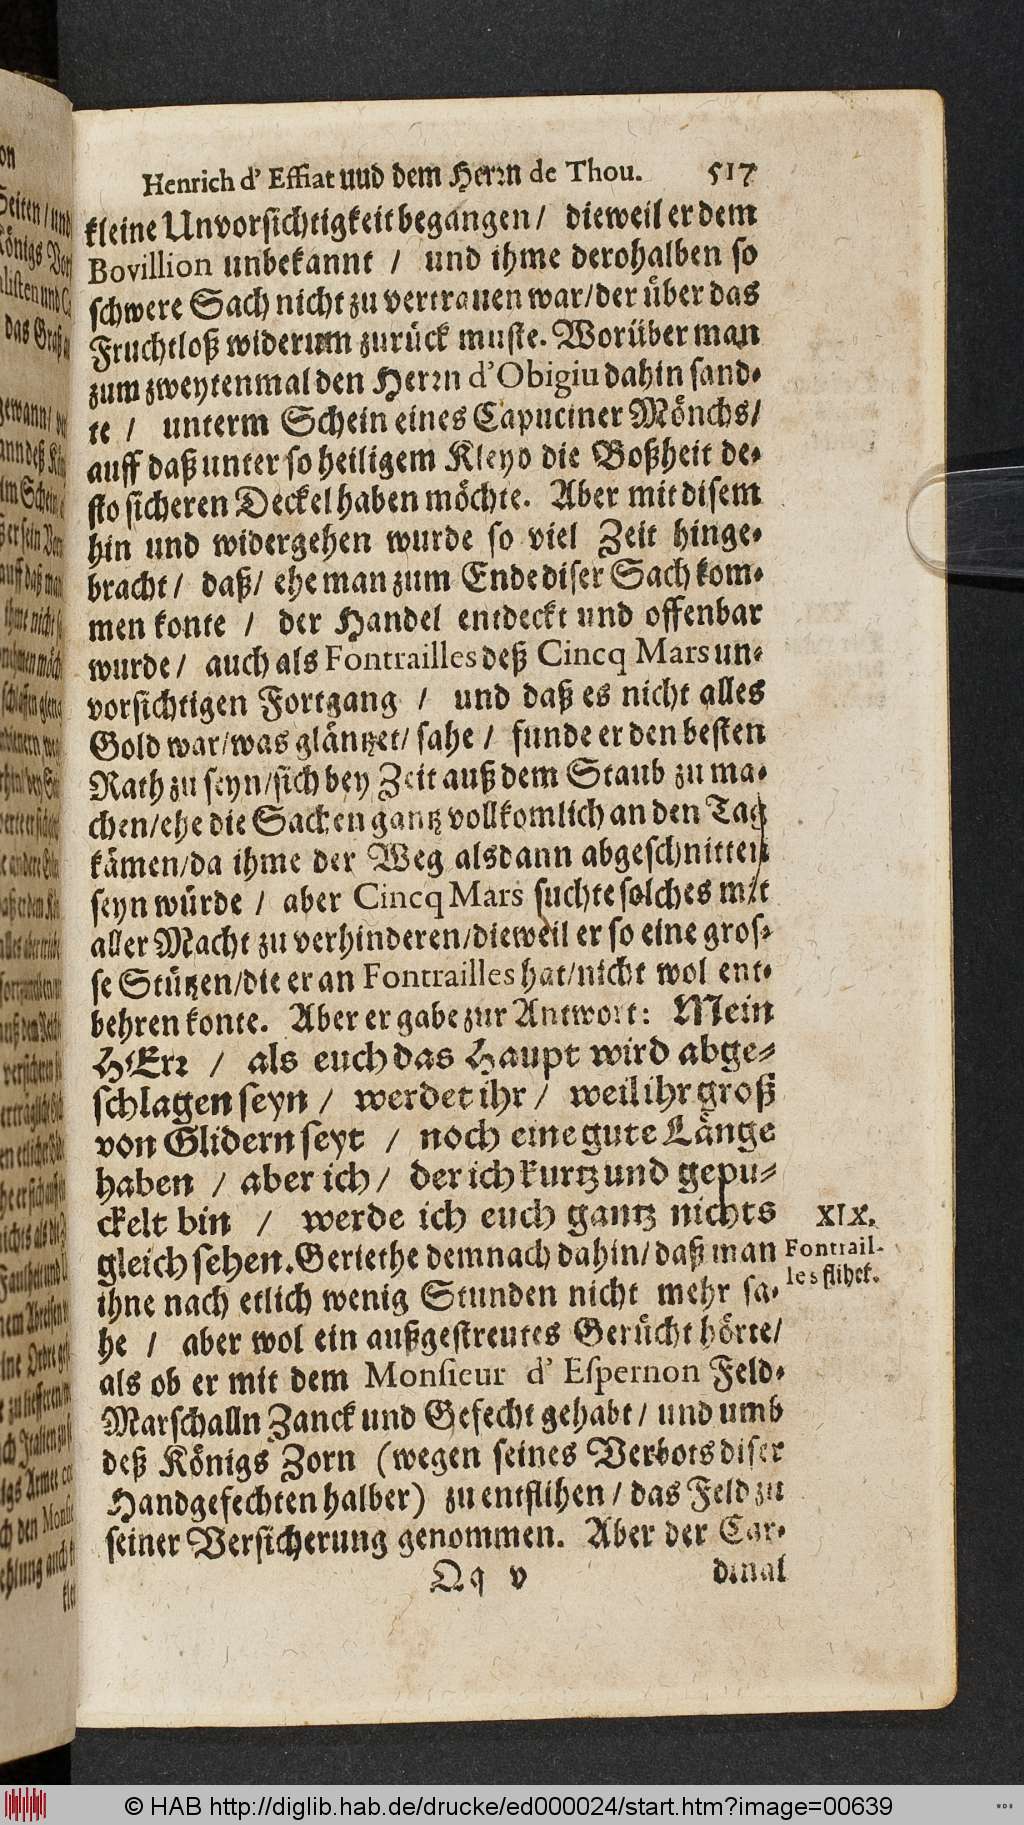 Henrich d' Effiat uud dem Herrn de Thou. 517
kleine Unvorsichtigkeit begangen / dieweil er dem
Bovillion unbekannt / und ihme derohalben so
schwere Sach nicht zu vertrauen war/der über das
Fruchtloß widerum zurück muste. Worüber man
zum zweytenmal den Herrn d'Obigiu dahin sand-
te / unterm Schein eines Capuciner Mönchs/
auff daß unter so heiligem Kleyd die Boßheit de-
sto sicheren Deckel haben möchte. Aber mit disem
hin und widergehen wurde so viel Zeit hinge-
bracht / daß/ ehe man zum Ende diser Sach kom-
men konte / der Handel entdeckt und offenbar
wurde / auch als Fontrailles deß Cincq Mars un-
vorsichtigen Fortgang / und daß es nicht alles
Gold war/was gläntzet/ sahe / funde er den besten
Rath zu seyn/sich bey Zeit auß dem Staub zu ma-
chen/ehe die Sachen gantz vollkomlich an den Tag
kämen/da ihme der Weg alsdann abgeschnitten
seyn würde / aber Cincq Mars suchte solches mit
aller Macht zu verhinderen/dieweil er so eine gros-
se Stützen/die er an Fontrailles hat/nicht wol ent-
behren konte. Aber er gabe zur Antwort: Mein
HErr / als euch das Haupt wird abge-
schlagen seyn / werdet ihr / weil ihr groß
von Glidern seyt / noch eine gute Länge
haben / aber ich / der ich kurtz und gepu-
ckelt bin / werde ich euch gantz nichts
gleich sehen. Geriethe demnach dahin/ daß man
ihne nach etlich wenig Stunden nicht mehr sa-
he / aber wol ein außgestreutes Gerücht hörte/
als ob er mit dem Monsieur d' Espernon Feld-
Marschalln Zanck und Gefecht gehabt / und umb
deß Königs Zorn (wegen seines Verbots diser
Handgefechten halber) zu entflihen / das Feld zu
seiner Versicherung genommen. Aber der Car-
Qq v dinal
XIX.
Fontrail-
les flihet.
© HAB http://diglib.hab.de/drucke/ed000024/start.htm?image=00639